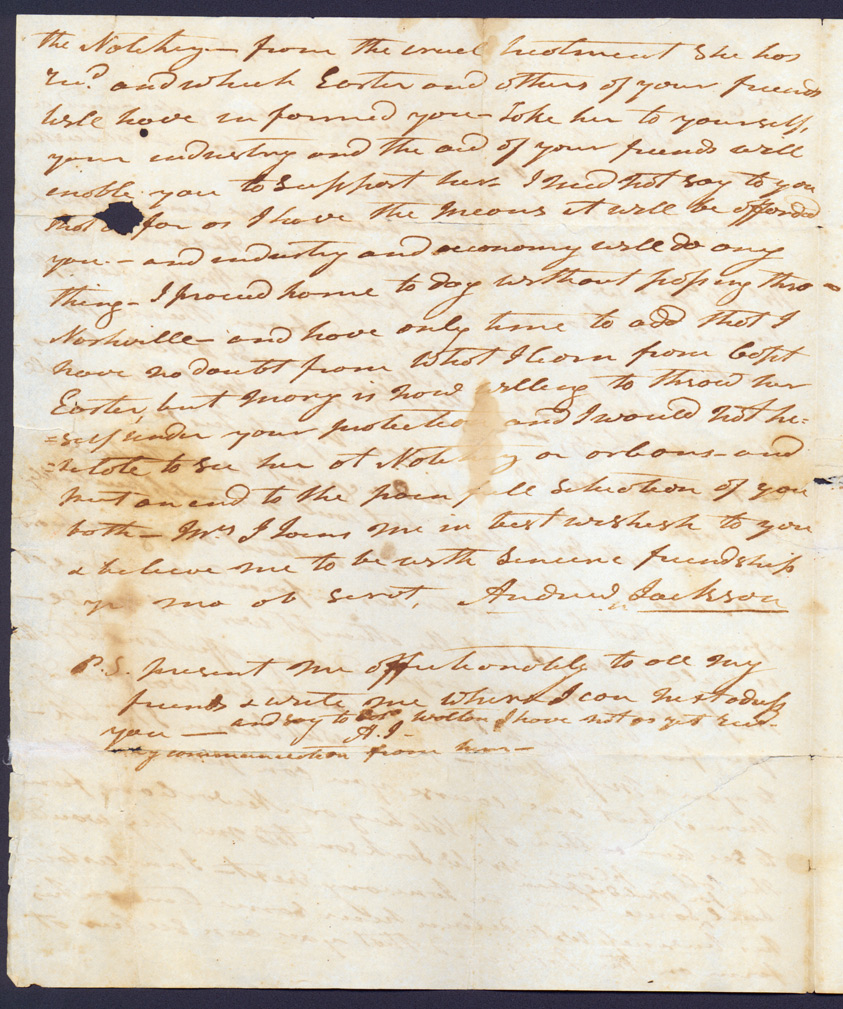 the Notchey— from the cruel treatment she has
Recd and which Easter and others of your friends
will have informed you— Take her to yourself,
your industry and the aid of your friends will
enable you to support her. I need not say to you
that as far as I have the means it will be afforded
you.— and industry and oeconomy will do any
thing— I proceed home to day without passing thro=
Nashville— and have only time to add that I
have no doubt from what I learn from Capt
Easter, but Mary is now willing to throw her
=self under your protection and I would not he=
=sitate to see her at Notchey or orleans— and
put an end to the pain full situation of you
both— Mrs J Joins me in best wishesh to you
& believe me to be with sincere friendship
yr mo ob servt, Andrew Jackson
P.S. present me affectionately to all my
friends & write me where I can best adress
you — and say to wotton I have not as yet recd.
A.J—
any communication from him—